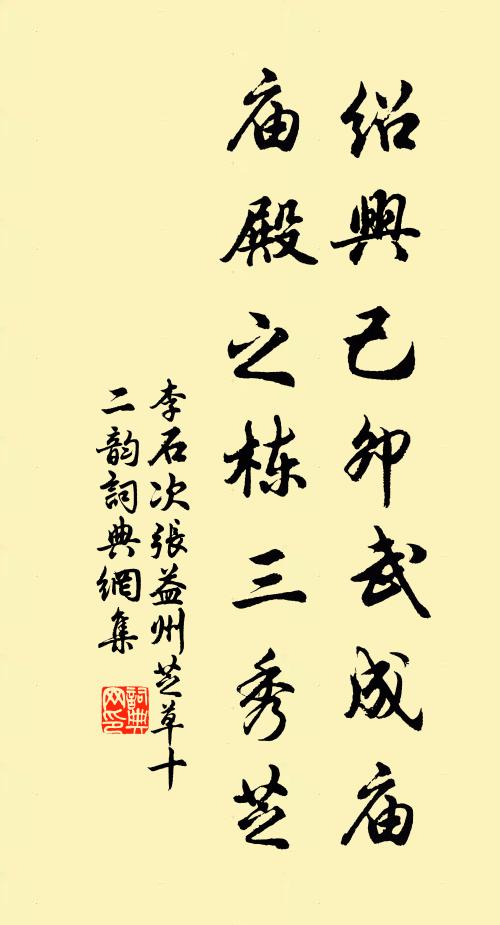 绍興己卯武成庙
庙殿之栋三秀芝
李石次張益州芝草十
二韵詞典網集
詞典
网印